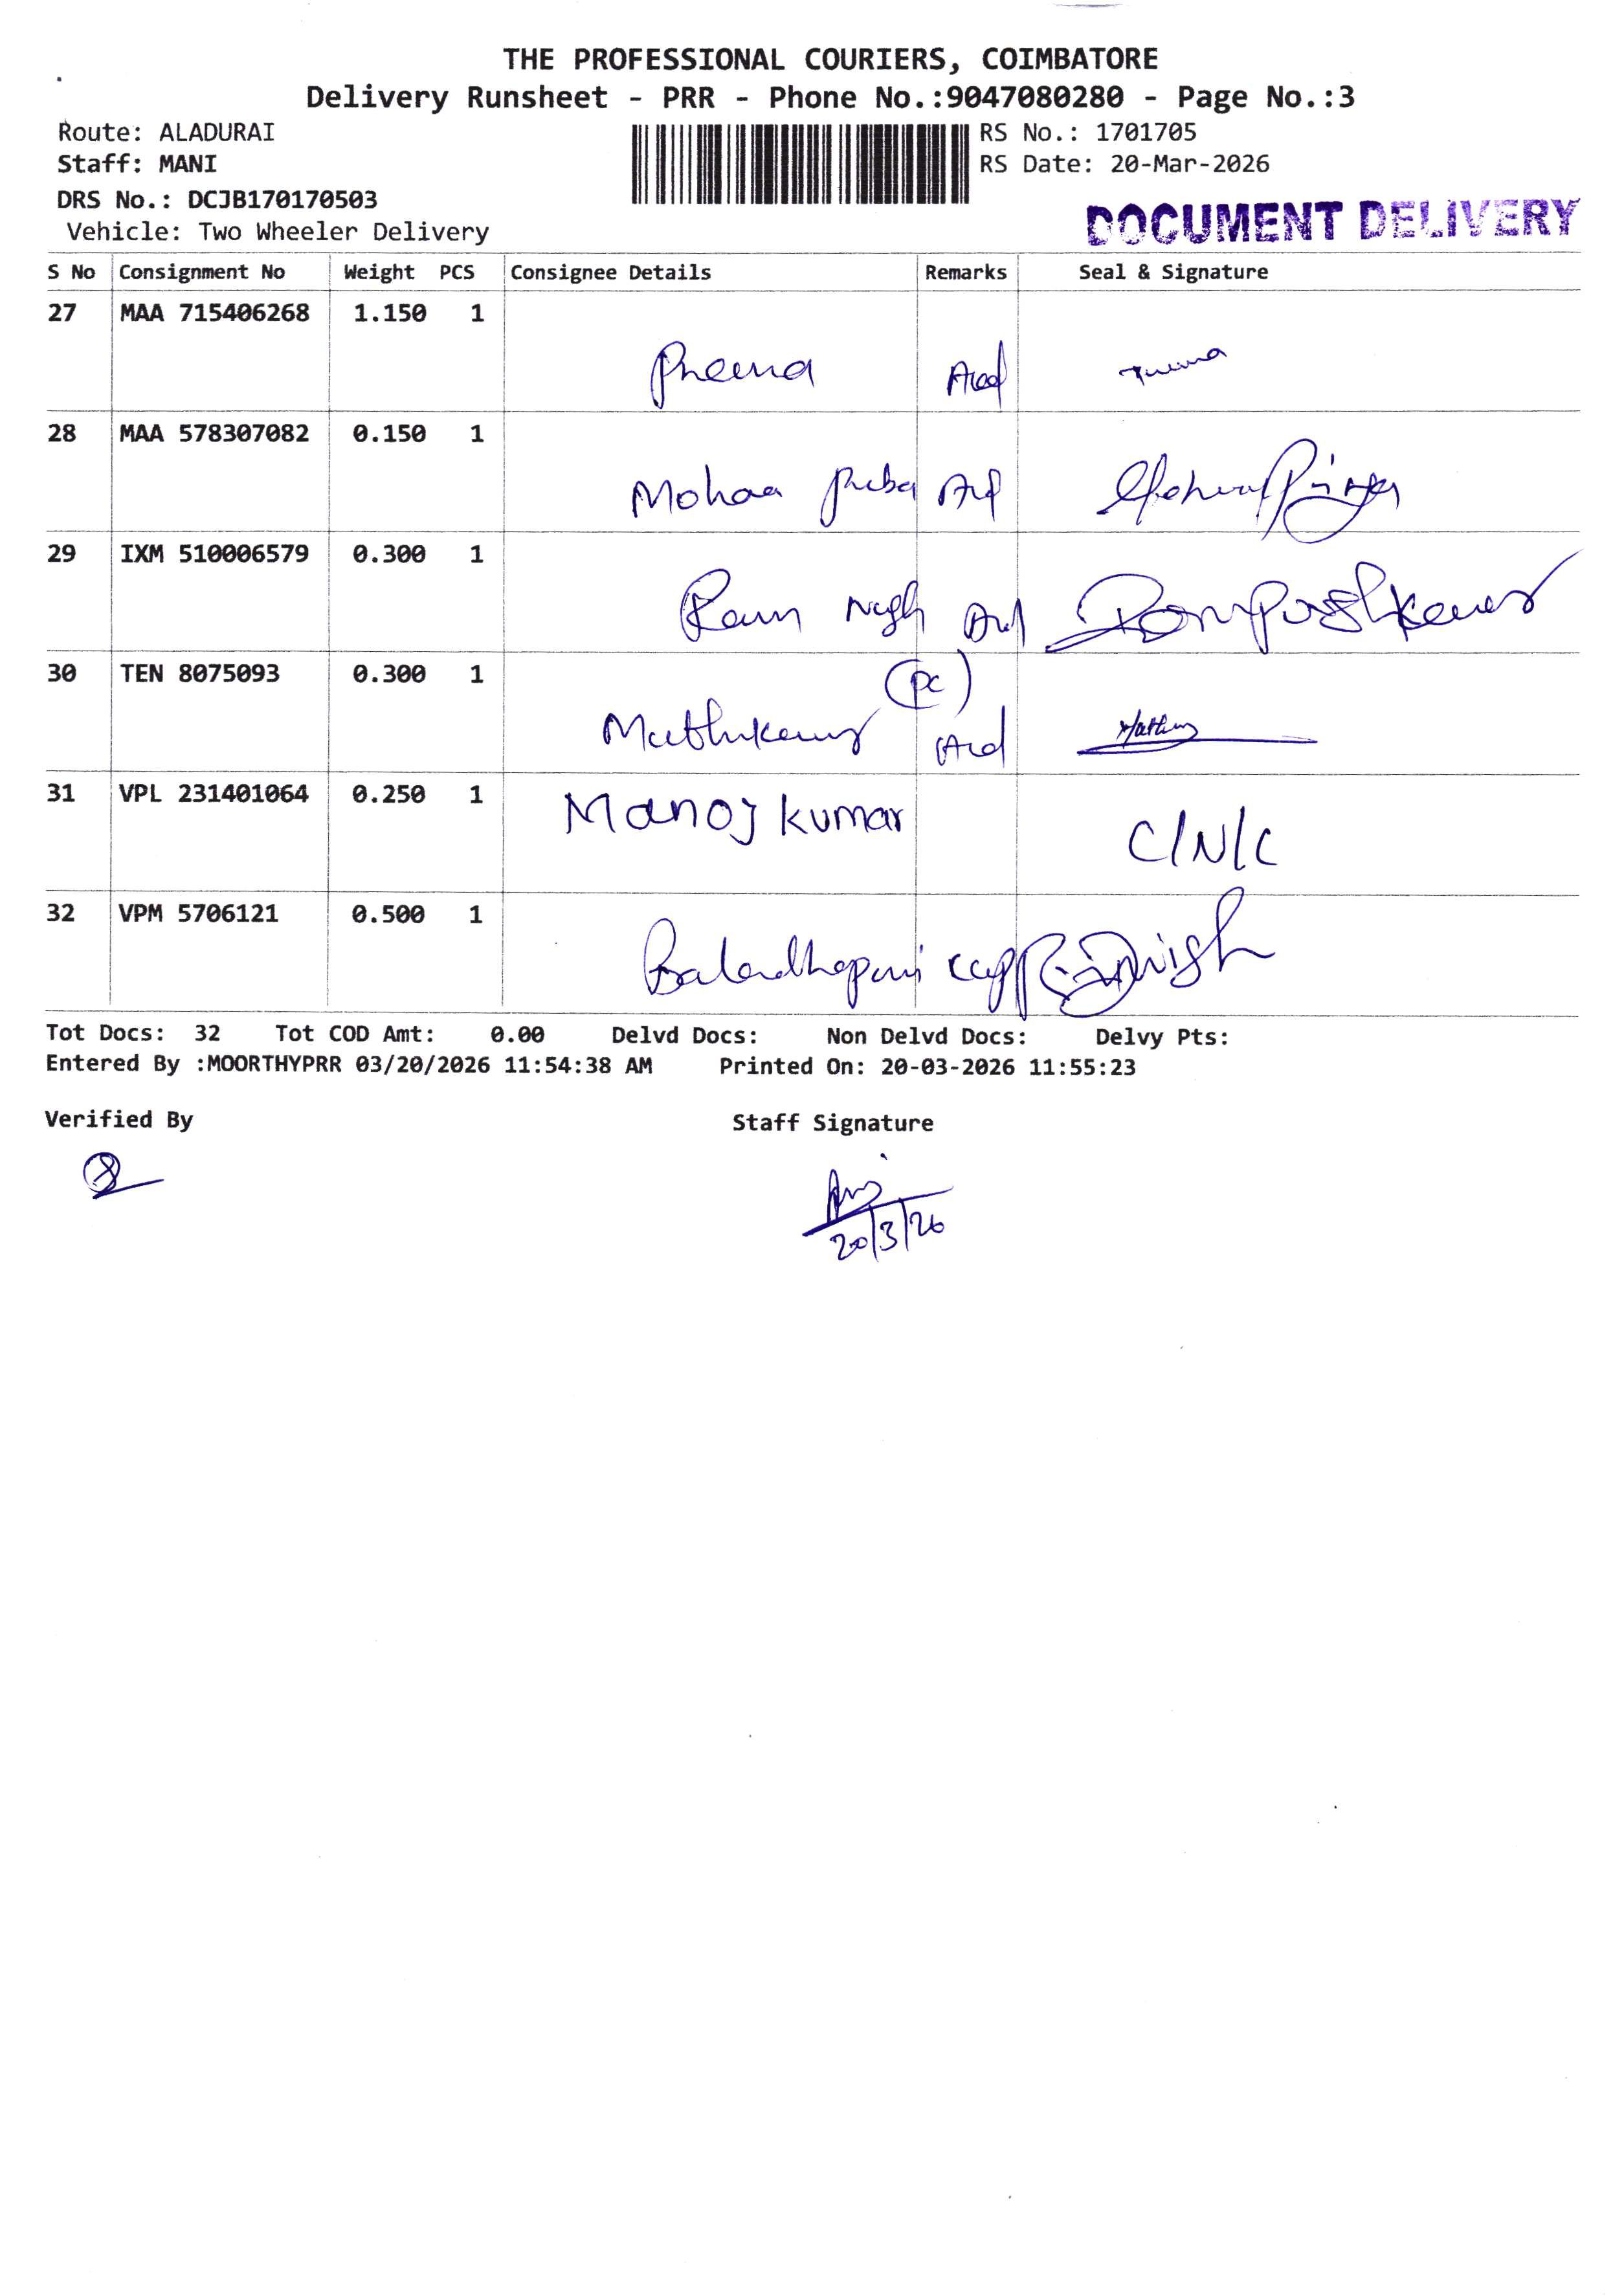 THE PROFESSIONAL COURIERS, COIMBATORE
Delivery Runsheet - PRR - Phone No.:9047080280 - Page No.:3
Route: ALADURAI
RS No.: 1701705
Staff: MANI
RS Date: 20-Mar-2026
DRS No.: DCJB170170503
DOCUMENT DELIVERY
Vehicle: Two Wheeler Delivery
S No Consignment No Weight PCS Consignee Details Remarks Seal & Signature
27 MAA 715406268 1.150 1
28 MAA 578307082 0.150 1
Mohaa
29 IXM 510006579 0.300 1
Ram
30 TEN 8075093 0.300 1
(pc)
31 VPL 231401064 0.250 1 Manoj kumar
C/N/C
32 VPM 5706121 0.500 1
Tot Docs: 32 Tot COD Amt: 0.00 Delvd Docs: Non Delvd Docs: Delvy Pts:
Entered By :MOORTHYPRR 03/20/2026 11:54:38 AM Printed On: 20-03-2026 11:55:23
Verified By Staff Signature
20/3/26